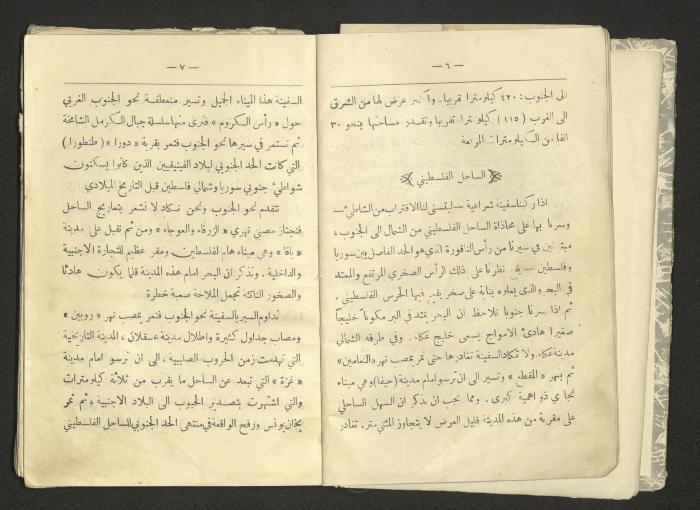 — ٦ —
الى الجنوب : ٤٢٠ كيلومترا تقريبا. واكبر عرض لها من الشرق
الى الغرب (١١٥) كيلومترا تقريبا وتقدر مساحتها بنحو ٣٠
الفا من الكيلومترات المربعة
الساحل الفلسطيني
اذا ركبنا سفينة شراعية – ليتسنى لنا الاقتراب من الشاطىء –
وسرنا بها على محاذاة الساحل الفلسطيني من الشمال الى الجنوب ،
مبتدئين في سيرنا من رأس الناقورة الذي هو الحد الفاصل بين سوريا
وفلسطين – يقع نظرنا على ذلك الرأس الصخري المرتفع والممتد
في البحر والذي يعلوه بناية على صخر يقيم فيها الحرس الفلسطيني .
ثم اذا سرنا جنوبا نلاحظ ان البحر يمتد في البر مكونا خليجا
صغيرا هادئ الامواج يسمى خليج عكا. وفي طرفه الشمالي
مدينة عكا. ولا تكاد السفينة تغادرها حتى تمر بمصب نهر «النعامين»
ثم بنهر «المقطع» وتسير الى ان ترسو امام مدينة (حيفا) وهي ميناء
تجاري ذو اهمية كبرى . ومما يجب ان يذكر ان السهل الساحلي
على مقربة من هذه المدينة قليل العرض لا يتجاوز المئتي متر. تغادر
— ٧ —
السفينة هذا الميناء الجميل وتسير منعطفة نحو الجنوب الغربي
حول «رأس الكروم» فنرى منها سلسلة جبال الكرمل الشامخة
ثم تستمر في سيرها نحو الجنوب فتمر بقرية «دورا» (طنطورا)
التي كانت الحد الجنوبي لبلاد الفينيقيين الذين كانوا يسكنون
شواطىء جنوبي سوريا وشمالي فلسطين قبل التاريخ الميلادي
تتقدم نحو الجنوب ونحن نكاد لا نشعر بتعاريج الساحل
فنجتاز مصبي نهري «الزرقاء والعوجاء» ومن ثم نقبل على مدينة
«يافا» وهي ميناء هام لفلسطين ومقر عظيم للتجارة الاجنبية
والداخلية . ونذكر ان البحر امام هذه المدينة قلما يكون هادئا
والصخور الناتئة تجعل الملاحة صعبة خطرة
نداوم السير بالسفينة نحو الجنوب فنمر بمصب نهر «روبين»
ومصاب جداول كثيرة واطلال مدينة عسقلان ، المدينة التاريخية
التي تهدمت زمن الحروب الصليبية ، الى ان نرسو امام مدينة
«غزة» التي تبعد عن الساحل ما يقرب من ثلاثة كيلومترات
والتي اشتهرت بتصدير الحبوب الى البلاد الاجنبية ، ثم نمر
بخان يونس ورفح الواقعة في منتهى الحد الجنوبي للساحل الفلسطيني